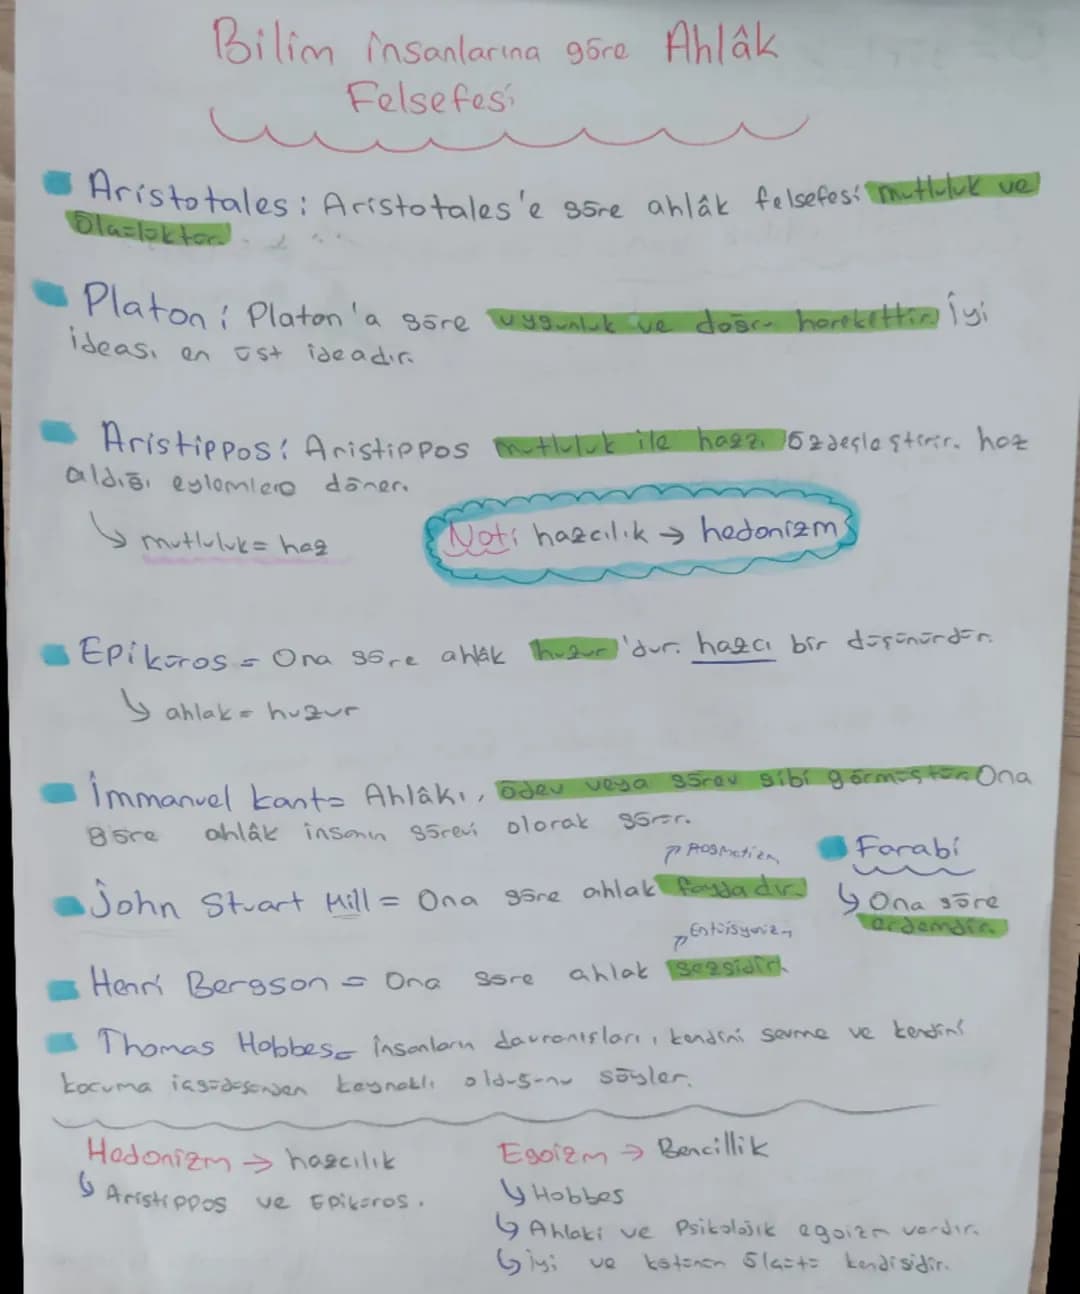 Bilim insanlarına göre Ahlâk
Felsefesi
Aristotales: Aristotales'e göre ahlâk felsefesi mutluluk ve
ölçülülüktür.
Platon: Platon'a göre uygunluk ve doğru harekettir. İyi
ideası en üst ideadır.
Aristippos: Aristippos mutluluk ile hazzı özdeşleştirir. haz
aldığı eylemlere döner.
mutluluk = haz
Not: hazcılık → hedonizm
Epiküros = Ona göre ahlâk huzur'dur. hazcı bir düşünürdür.
ahlak = huzur
İmmanuel kant= Ahlâkı, ödev veya görev gibi görmüştür. Ona
göre ahlâk insanın görevi olarak görür.
Farabi
John Stuart Mill = Ona göre ahlak faydadır.
Ona göre
erdemdir.
Henri Bergson = Ona göre ahlak sezgidir.
Thomas Hobbes= insanların davranışları, kendini sevme ve kendini
koruma içgüdüsünden kaynaklı olduğunu söyler.
Hedonizm → hazcılık
Aristippos ve Epiküros.
Egoizm → Bencillik
Hobbes
Ahlaki ve Psikolojik egoizm vardır.
iyi ve kötünün ölçütü kendisidir.